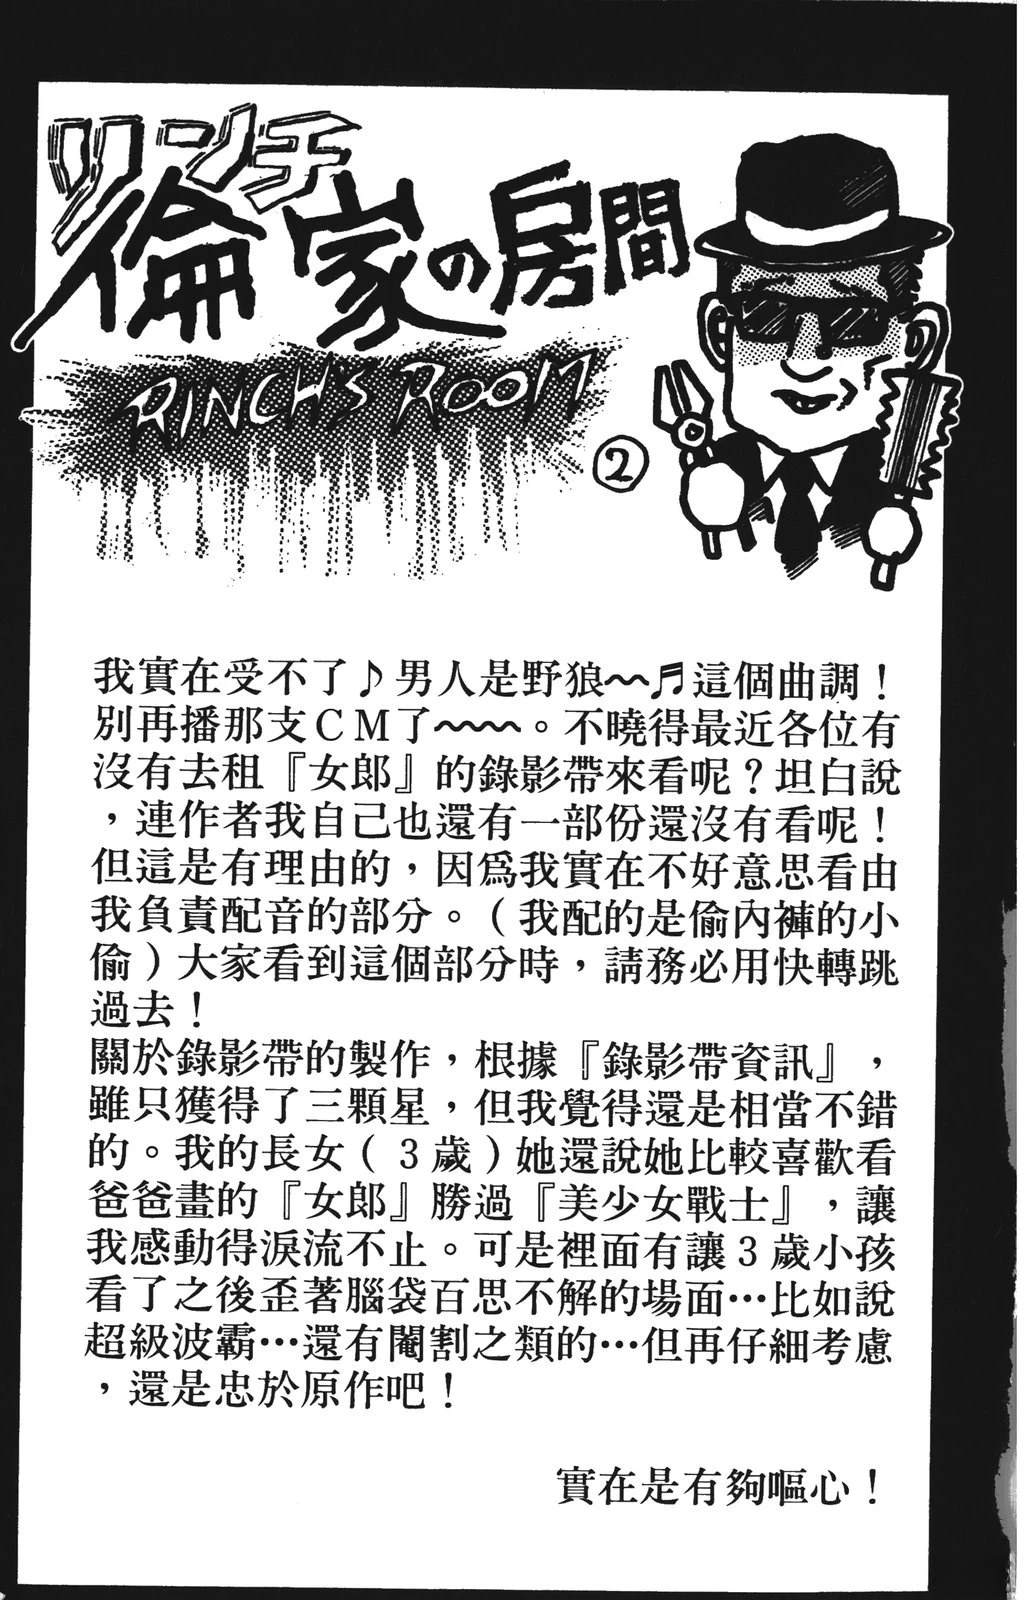 リンチ
倫家の房間
RINCH'S ROOM
②
我實在受不了♪男人是野狼～～♬這個曲調！
別再播那支ＣＭ了～～～。不曉得最近各位有
沒有去租『女郎』的錄影帶來看呢？坦白說
，連作者我自己也還有一部份還沒有看呢！
但這是有理由的，因為我實在不好意思看由
我負責配音的部分。（我配的是偷內褲的小
偷）大家看到這個部分時，請務必用快轉跳
過去！
關於錄影帶的製作，根據『錄影帶資訊』，
雖只獲得了三顆星，但我覺得還是相當不錯
的。我的長女（３歲）她還說她比較喜歡看
爸爸畫的『女郎』勝過『美少女戰士』，讓
我感動得淚流不止。可是裡面有讓３歲小孩
看了之後歪著腦袋百思不解的場面…比如說
超級波霸…還有閹割之類的…但再仔細考慮
，還是忠於原作吧！
實在是有夠嘔心！